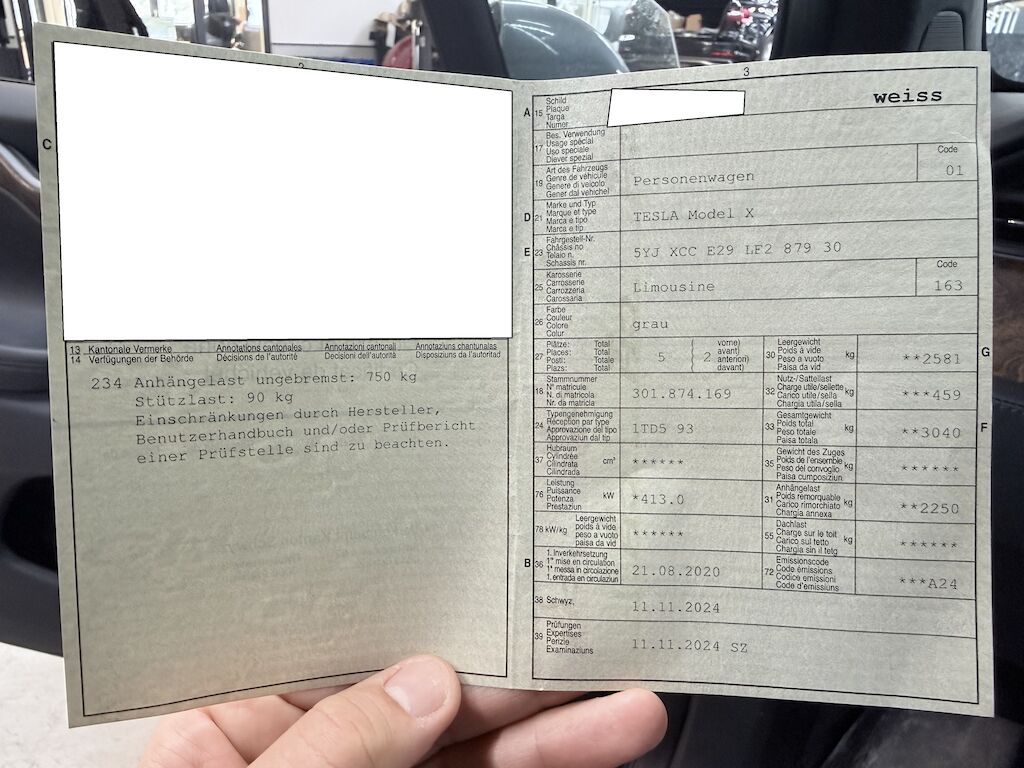 2
C
13 Kantonale Vermerke Annotations cantonales Annotazioni cantonali Annotaziuns chantunalas
14 Verfügungen der Behörde Décisions de l'autorité Decisioni dell'autorità Disposiziuns da l'autoritad
234 Anhängelast ungebremst: 750 kg
Stützlast: 90 kg
Einschränkungen durch Hersteller,
Benutzerhandbuch und/oder Prüfbericht
einer Prüfstelle sind zu beachten.
3
A 15 Schild
Plaque
Targa
Numer
weiss
17 Bes. Verwendung
Usage spécial
Uso speciale
Diever spezial
19 Art des Fahrzeugs
Genre de véhicule
Genere di veicolo
Gener dal vehichel
Personenwagen
Code
01
D 21 Marke und Typ
Marque et type
Marca e tipo
Marca e tip
TESLA Model X
E 23 Fahrgestell-Nr.
Châssis no
Telaio n.
Schassis nr.
5YJ XCC E29 LF2 879 30
25 Karosserie
Carrosserie
Carrozzeria
Carossaria
Limousine
Code
163
26 Farbe
Couleur
Colore
Colur
grau
27 Plätze: Total
Places: Total
Posti: Total
Plazs: Total
5 2 vorne)
avant)
anteriori)
davant)
30 Leergewicht
Poids à vide
Peso a vuoto
Paisa da vid
kg
**2581
G
18 Stammnummer
N° matricule
N. di matricola
Nr. da matricla
301.874.169
32 Nutz-/Sattellast
Charge utile/sellette
Carico utile/sella
Chargia utila/sella
kg
***459
24 Typengenehmigung
Réception par type
Approvazione del tipo
Approvaziun dal tip
1TD5 93
33 Gesamtgewicht
Poids total
Peso totale
Paisa totala
kg
**3040
F
37 Hubraum
Cylindrée
Cilindrata
Cilindrada
cm³
******
35 Gewicht des Zuges
Poids de l'ensemble
Peso del convoglio
Paisa cumposiziun
kg
******
76 Leistung
Puissance
Potenza
Prestaziun
kW
*413.0
31 Anhängelast
Poids remorquable
Carico rimorchiato
Chargia annexa
kg
**2250
78 kW/kg Leergewicht
poids à vide
peso a vuoto
paisa da vid
******
55 Dachlast
Charge sur le toit
Carico sul tetto
Chargia sin il tetg
kg
******
B 36 1. Inverkehrsetzung
1re mise en circulation
1a messa in circolazione
1. entrada en circulaziun
21.08.2020
72 Emissionscode
Code émissions
Codice emissioni
Code d'emissiuns
***A24
38 Schwyz,
11.11.2024
39 Prüfungen
Expertises
Perizie
Examinaziuns
11.11.2024 SZ